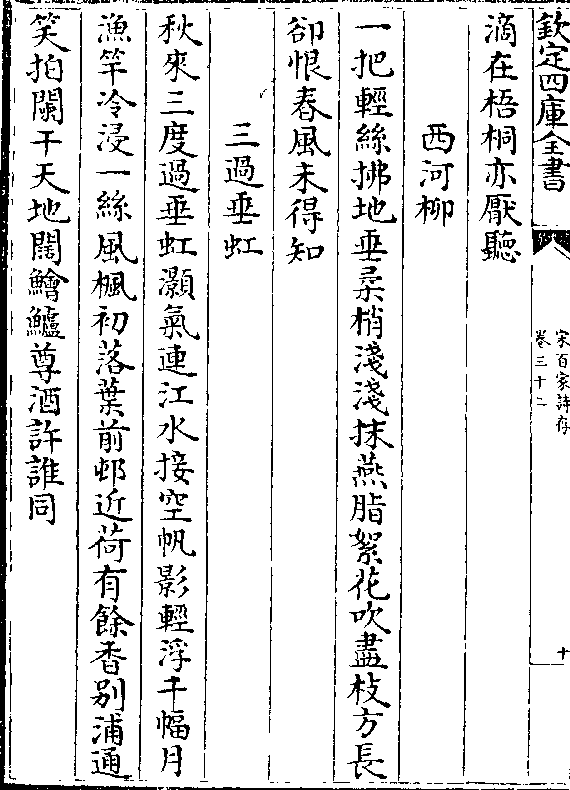 欽定四庫全書
宋百家詩存
卷三十二
十
滴在梧桐亦厭聽
西河柳
一把輕絲拂地垂柔梢淺淺抹燕脂絮花吹盡枝方長
卻恨春風未得知
三過垂虹
秋來三度過垂虹灝氣連江水接空帆影輕浮千幅月
漁竿冷浸一絲風楓初落葉前邨近荷有餘香别浦通
笑拍闌干天地闊鱠鱸尊酒許誰同